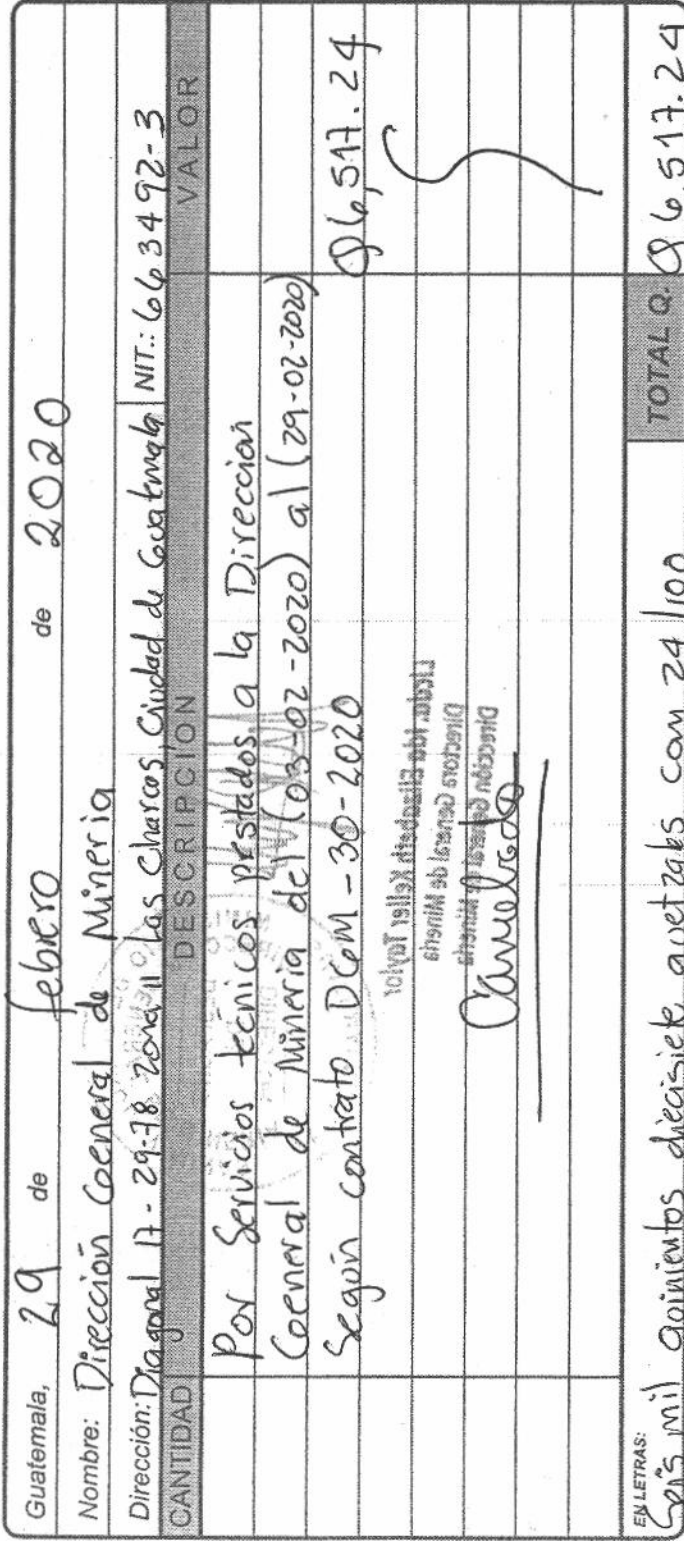 Guatemala, 29 de febrero de 2020
Nombre: Dirección General de Minería
Dirección: Diagonal 17 - 29-78 zona 11 Las Charcas, Ciudad de Guatemala NIT.: 663492-3
CANTIDAD DESCRIPCIÓN VALOR
Por Servicios técnicos prestados a la Dirección
General de Minería del (03-02-2020) al (29-02-2020)
Según contrato DGM-30-2020 Q6,517.24
Licda. Ida Elizabeth Keller Taylor
Directora General de Minería
Dirección General de Minería
Cancelado
EN LETRAS:
Seis mil quinientos diecisiete quetzales con 24/100 TOTAL Q. Q6,517.24